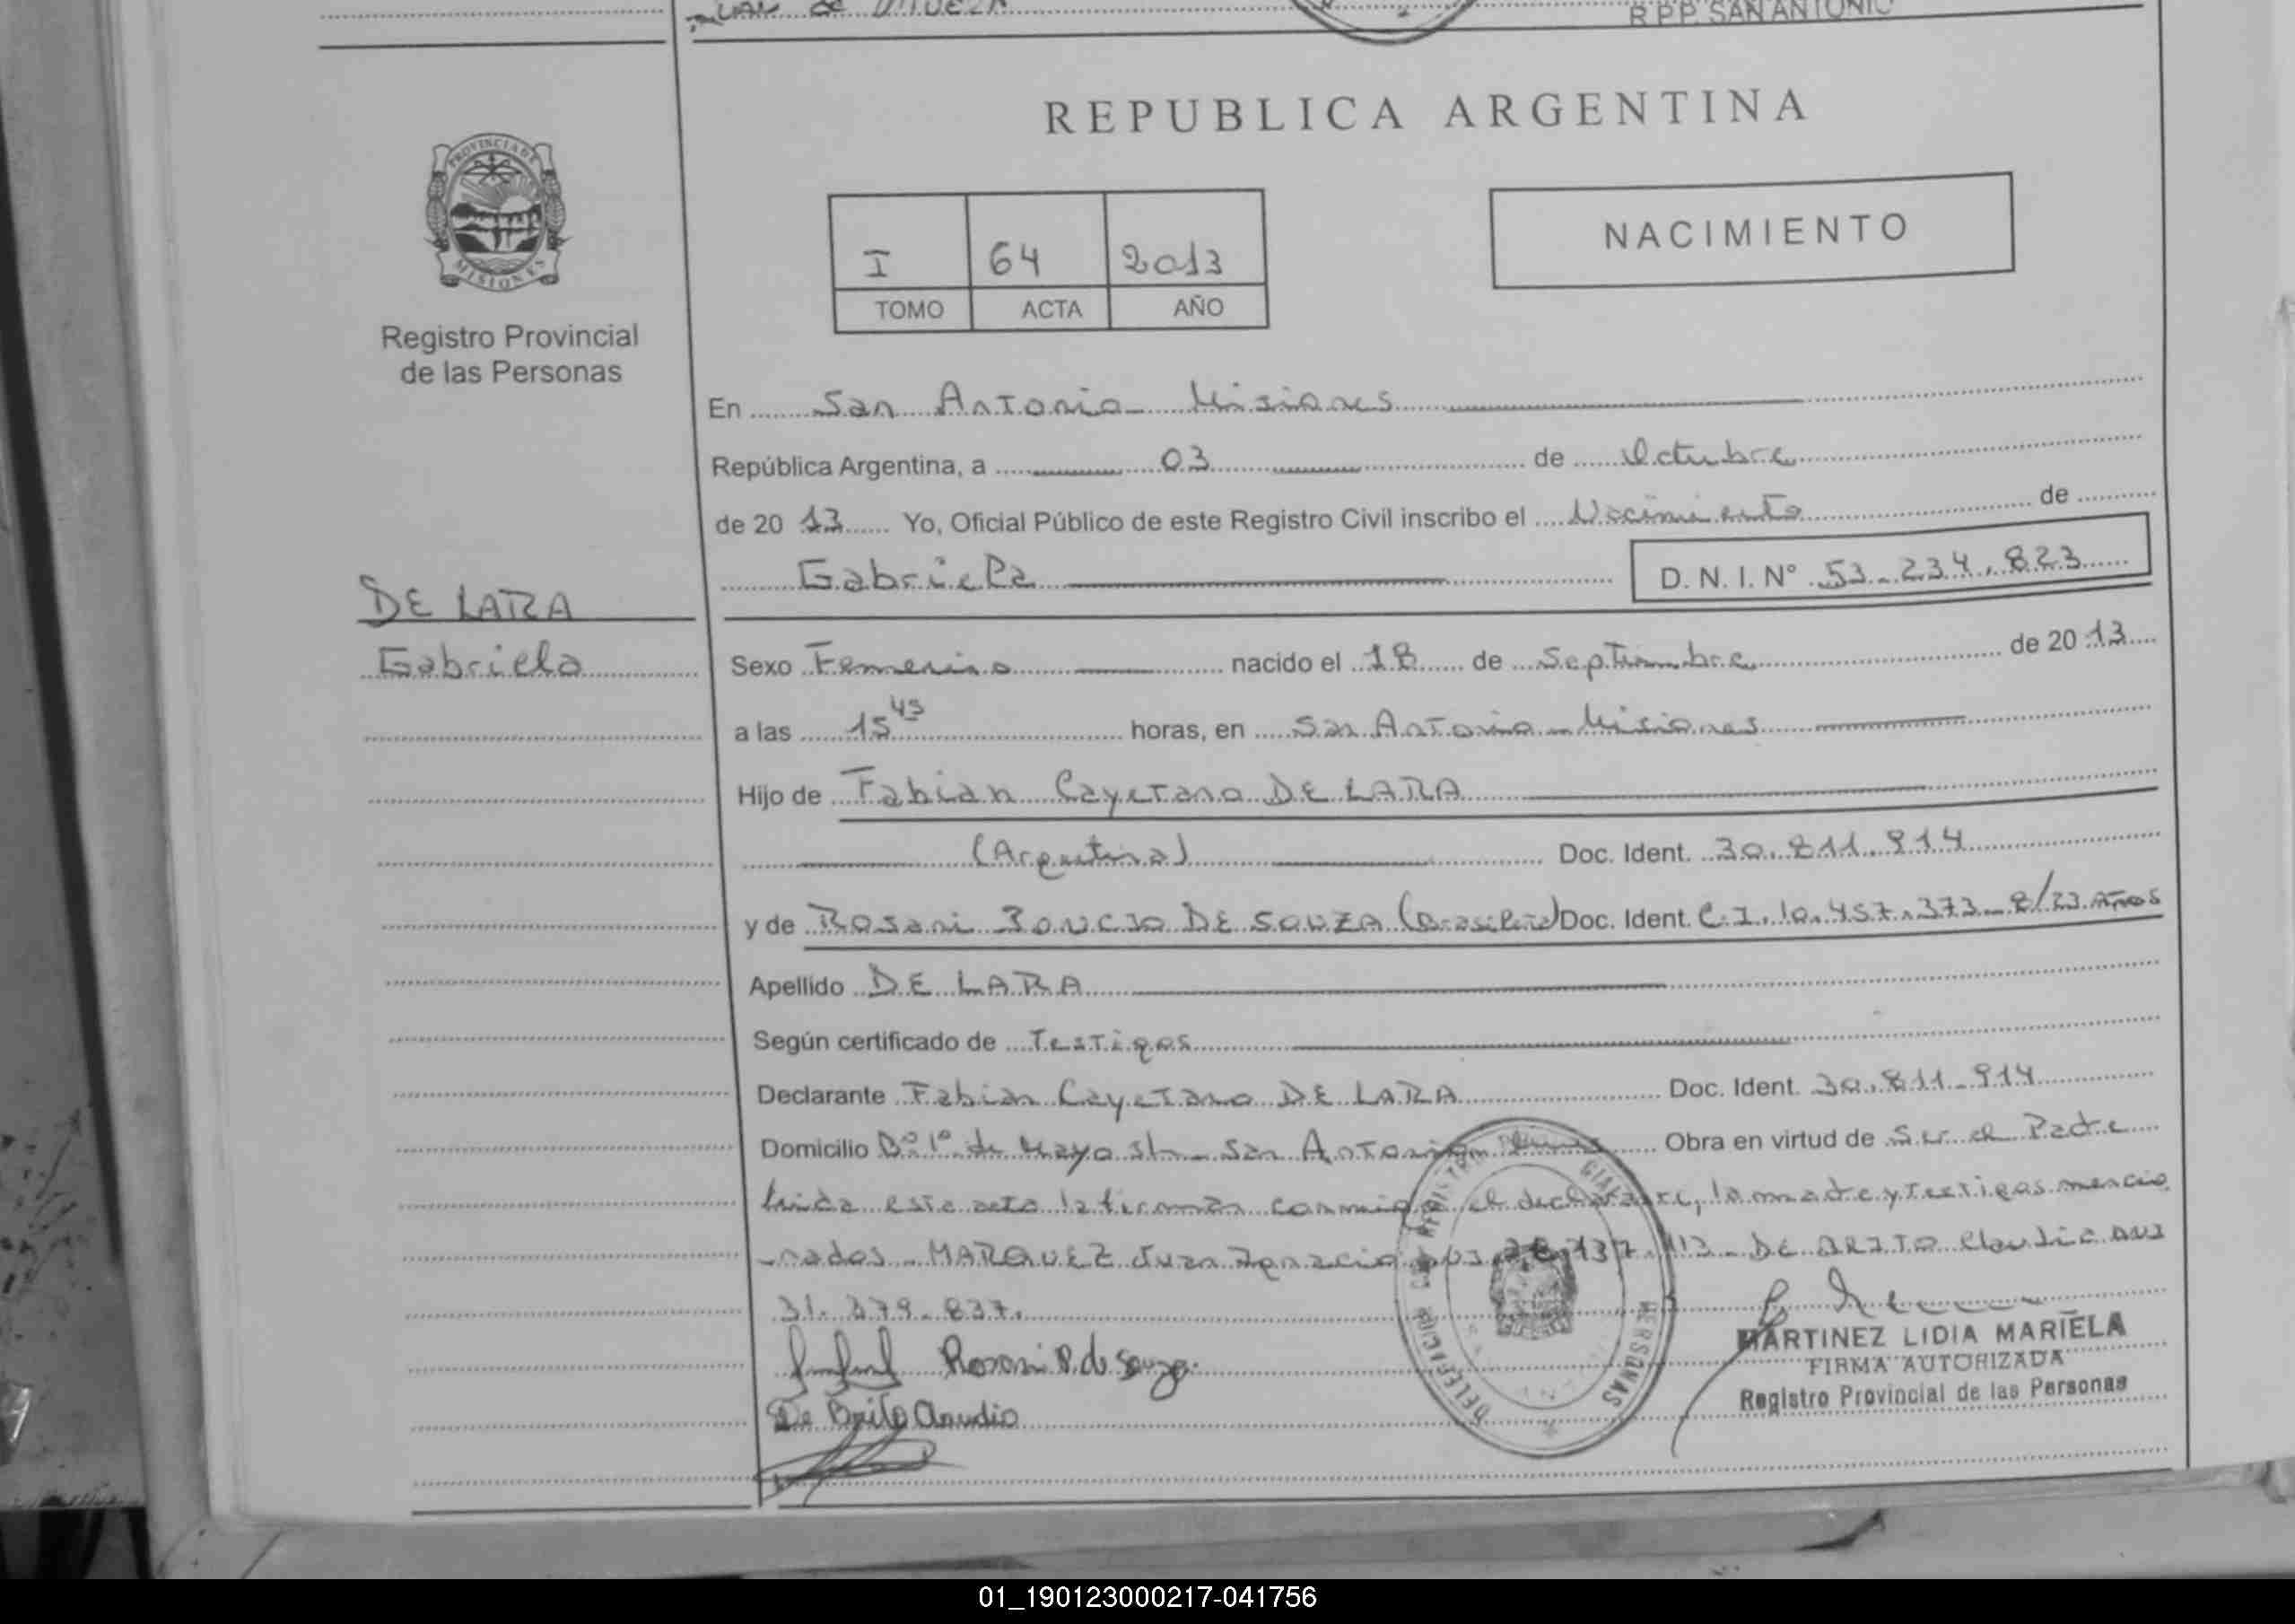 R.P.P. SAN ANTONIO
REPUBLICA ARGENTINA
PROVINCIA DE
MISIONES
Registro Provincial
de las Personas
I 64 2013
TOMO ACTA AÑO
NACIMIENTO
En San Antonio Misiones
República Argentina, a 03 de Octubre
de 20 13 Yo, Oficial Público de este Registro Civil inscribo el Nacimiento de
Gabriela D.N.I.N° 53.234.823
DE LARA
Gabriela
Sexo Femenino nacido el 18 de Septiembre de 20 13
a las 15 45 horas, en San Antonio - Misiones
Hijo de Fabian Cayetano DE LARA
(Argentina) Doc. Ident. 30.811.914
y de Rosani DE SOUZA (Brasileña) Doc. Ident. C.I. 10.457.373-8/23 Años
Apellido DE LARA
Según certificado de Testigos
Declarante Fabian Cayetano DE LARA Doc. Ident. 30.811.914
Domicilio B° 1° de Mayo s/n - San Antonio Obra en virtud de Ser el Padre
Leida esta acta la firman conmigo el declarante, la madre y testigos mencio
-nados - MARQUEZ Juan Ignacio 137.113 - DE BRITO Claudio DNI
31.379.837.
Rosani P. de Souza
De Brito Claudio
DELEGACION
PERSONAS
MARTINEZ LIDIA MARIELA
FIRMA AUTORIZADA
Registro Provincial de las Personas
01_190123000217-041756